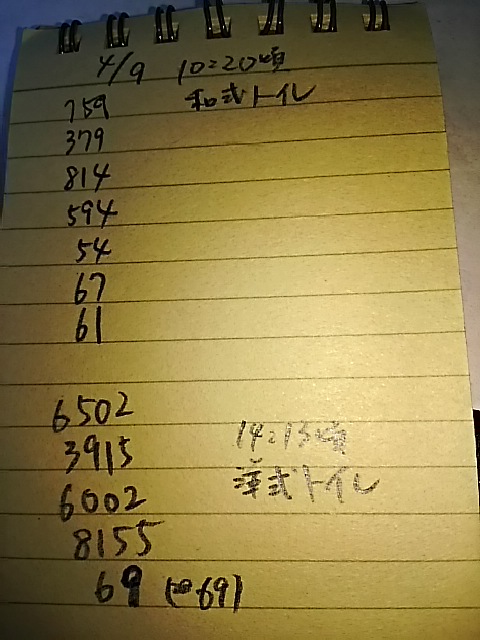 4/9 10:20頃
759 和式トイレ
379
814
594
54
67
61
6502
3915 14:13頃
6002 洋式トイレ
8155
69 (69)